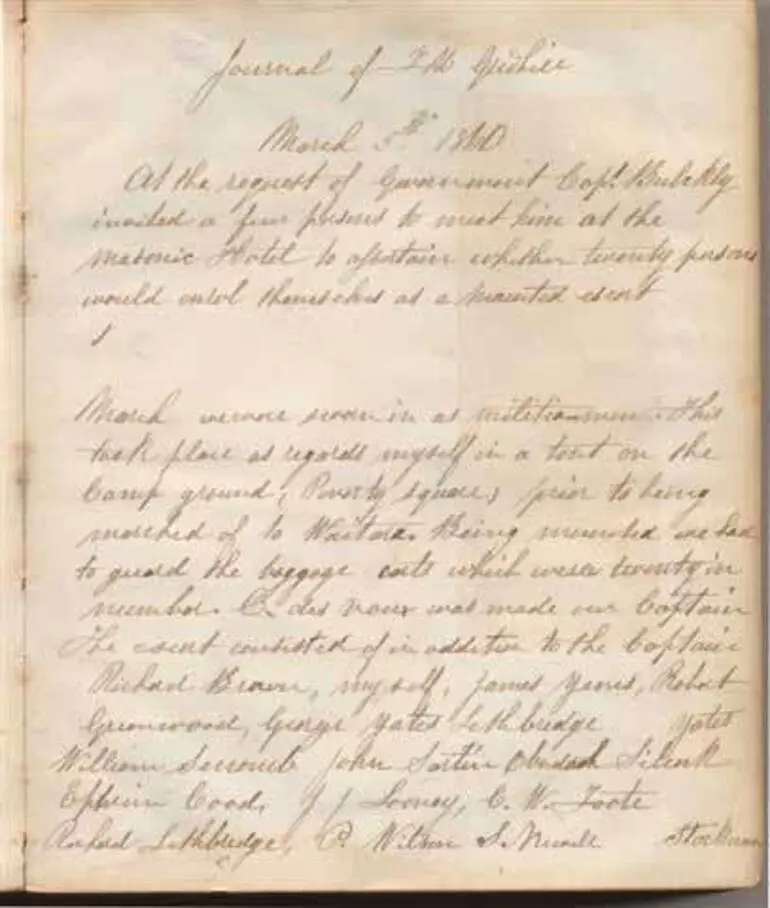 Journal of
March 5th 1860
At the request of Government Capt. Bulckly
invited a few persons to meet him at the
Masonic Hotel to assertain whether twenty persons
would enrol themselves as a mounted escort
March we were sworn in as militia-men. This
took place as regards myself in a tent on the
Camp ground, Poverty square, prior to being
marched of to Waitara. Being mounted we had
to guard the baggage carts which were twenty in
number. C. des Voux was made our Captain
The escort consisted of in addition to the Captain
Richard Brown, myself, James Robert
Greenwood, George Yates Lethbridge Yates
William John Sartin Obadiah Silcock
Ephraim Coad, J J Looney, C. W. Foote
Richard Lethbridge, P. Wilson S. Stockman